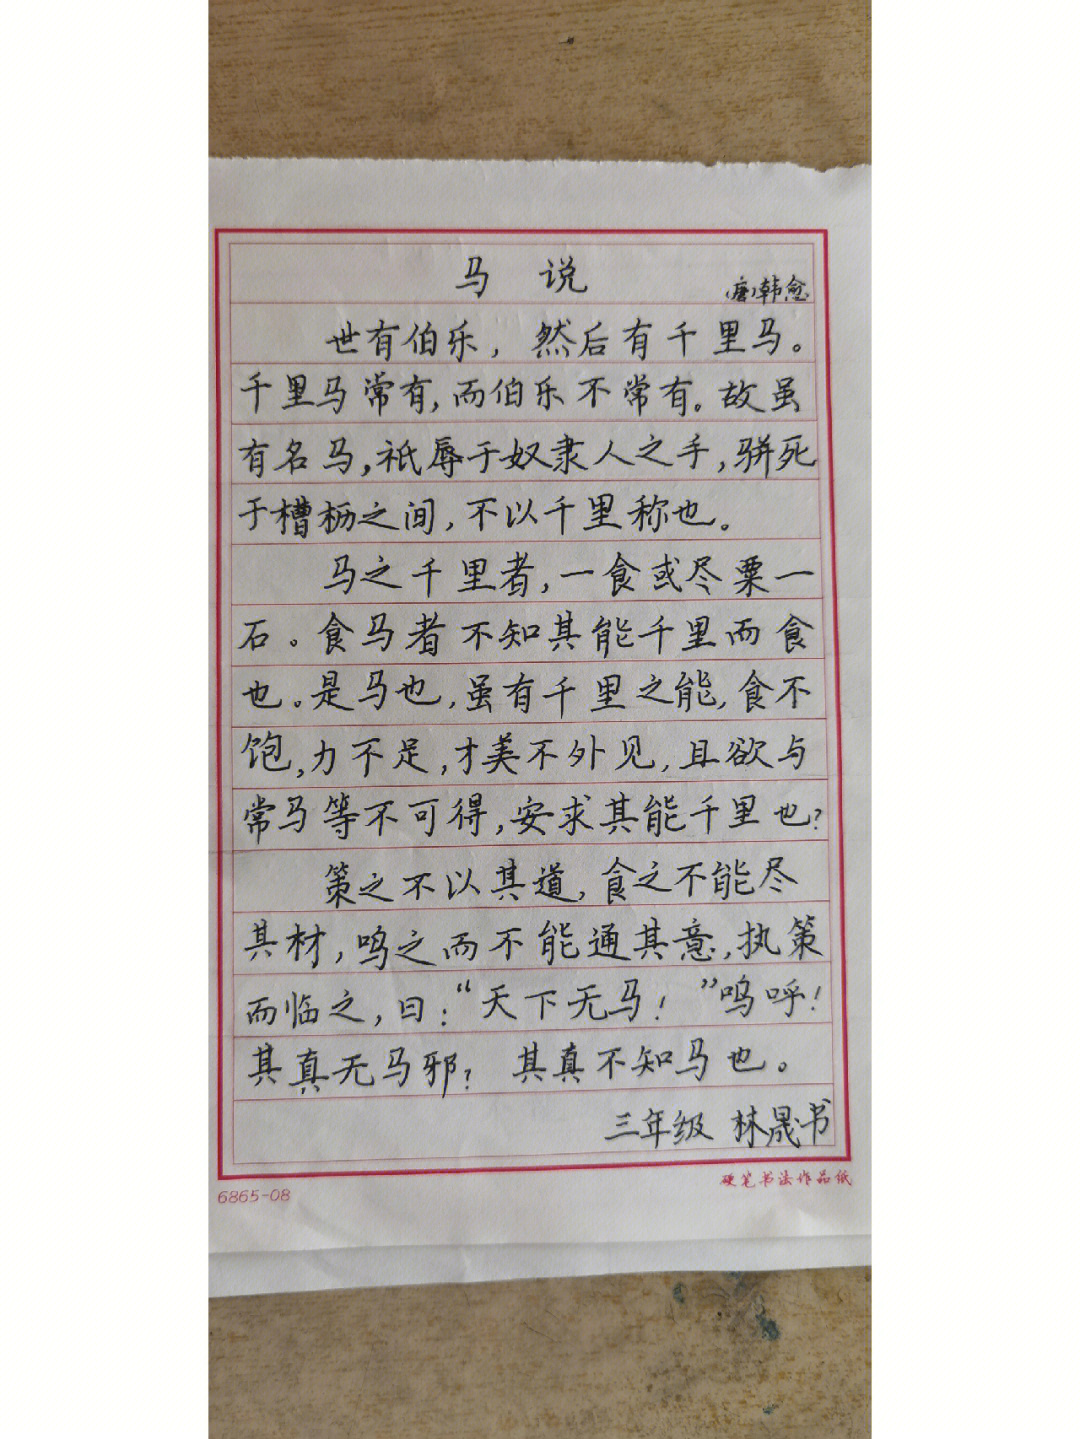 马 说
（唐）韩愈
世有伯乐，然后有千里马。
千里马常有，而伯乐不常有。故虽
有名马，祇辱于奴隶人之手，骈死
于槽枥之间，不以千里称也。
马之千里者，一食或尽粟一
石。食马者不知其能千里而食
也。是马也，虽有千里之能，食不
饱，力不足，才美不外见，且欲与
常马等不可得，安求其能千里也？
策之不以其道，食之不能尽
其材，鸣之而不能通其意，执策
而临之，曰：“天下无马！”呜呼！
其真无马邪？ 其真不知马也。
三年级 林晟书
6865-08
硬笔书法作品纸